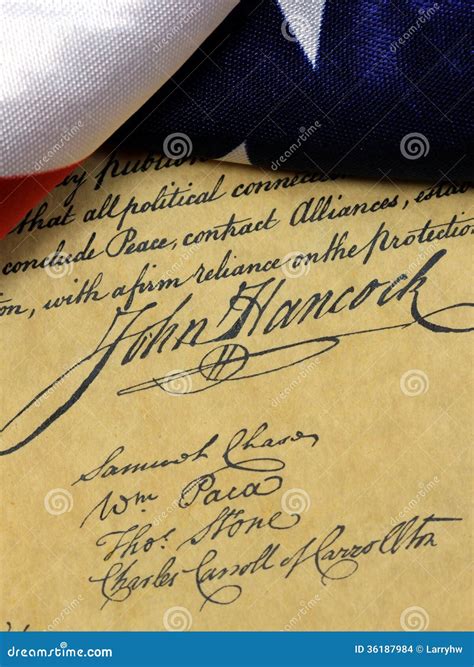 that all political connec
conclude Peace, contract Alliances, esta
on, with a firm reliance on the protectio
John Hancock
Samuel Chase
Wm Paca
Thos. Stone
Charles Carroll of Carrollton
dreamstime.com
ID 36187984 © Larryhw